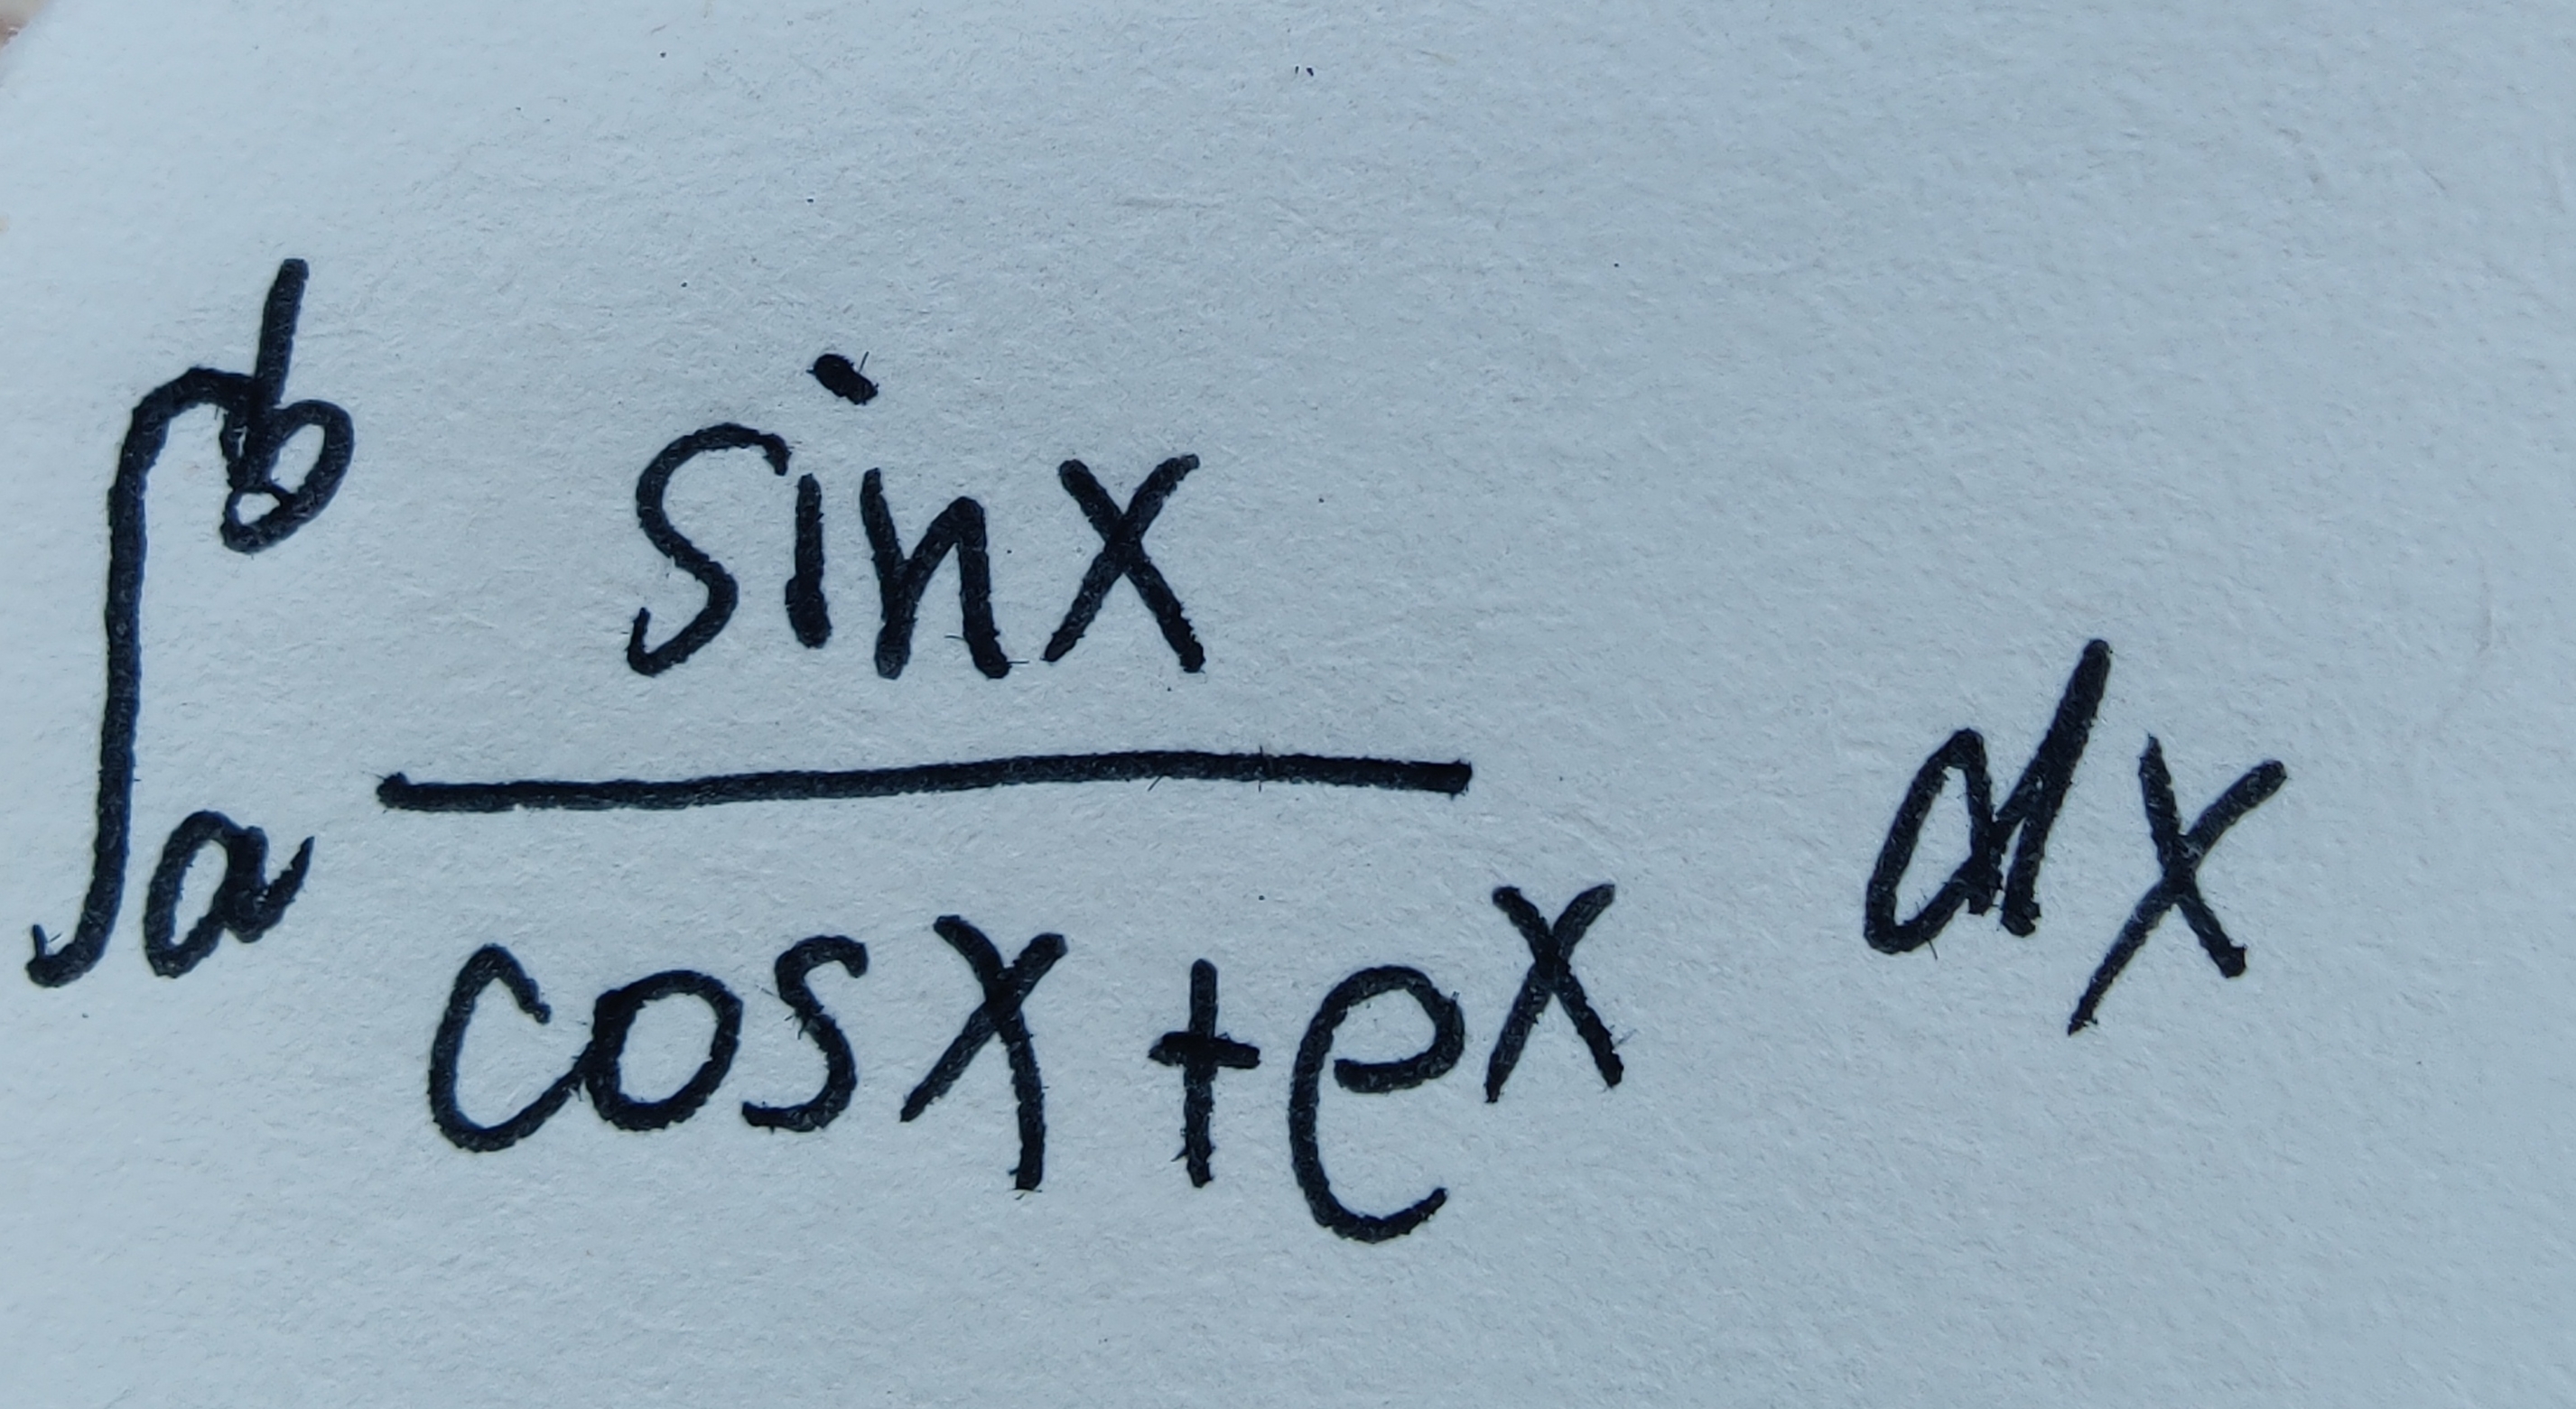 ∫_a^b \frac{sinx}{cosx+e^x} dx